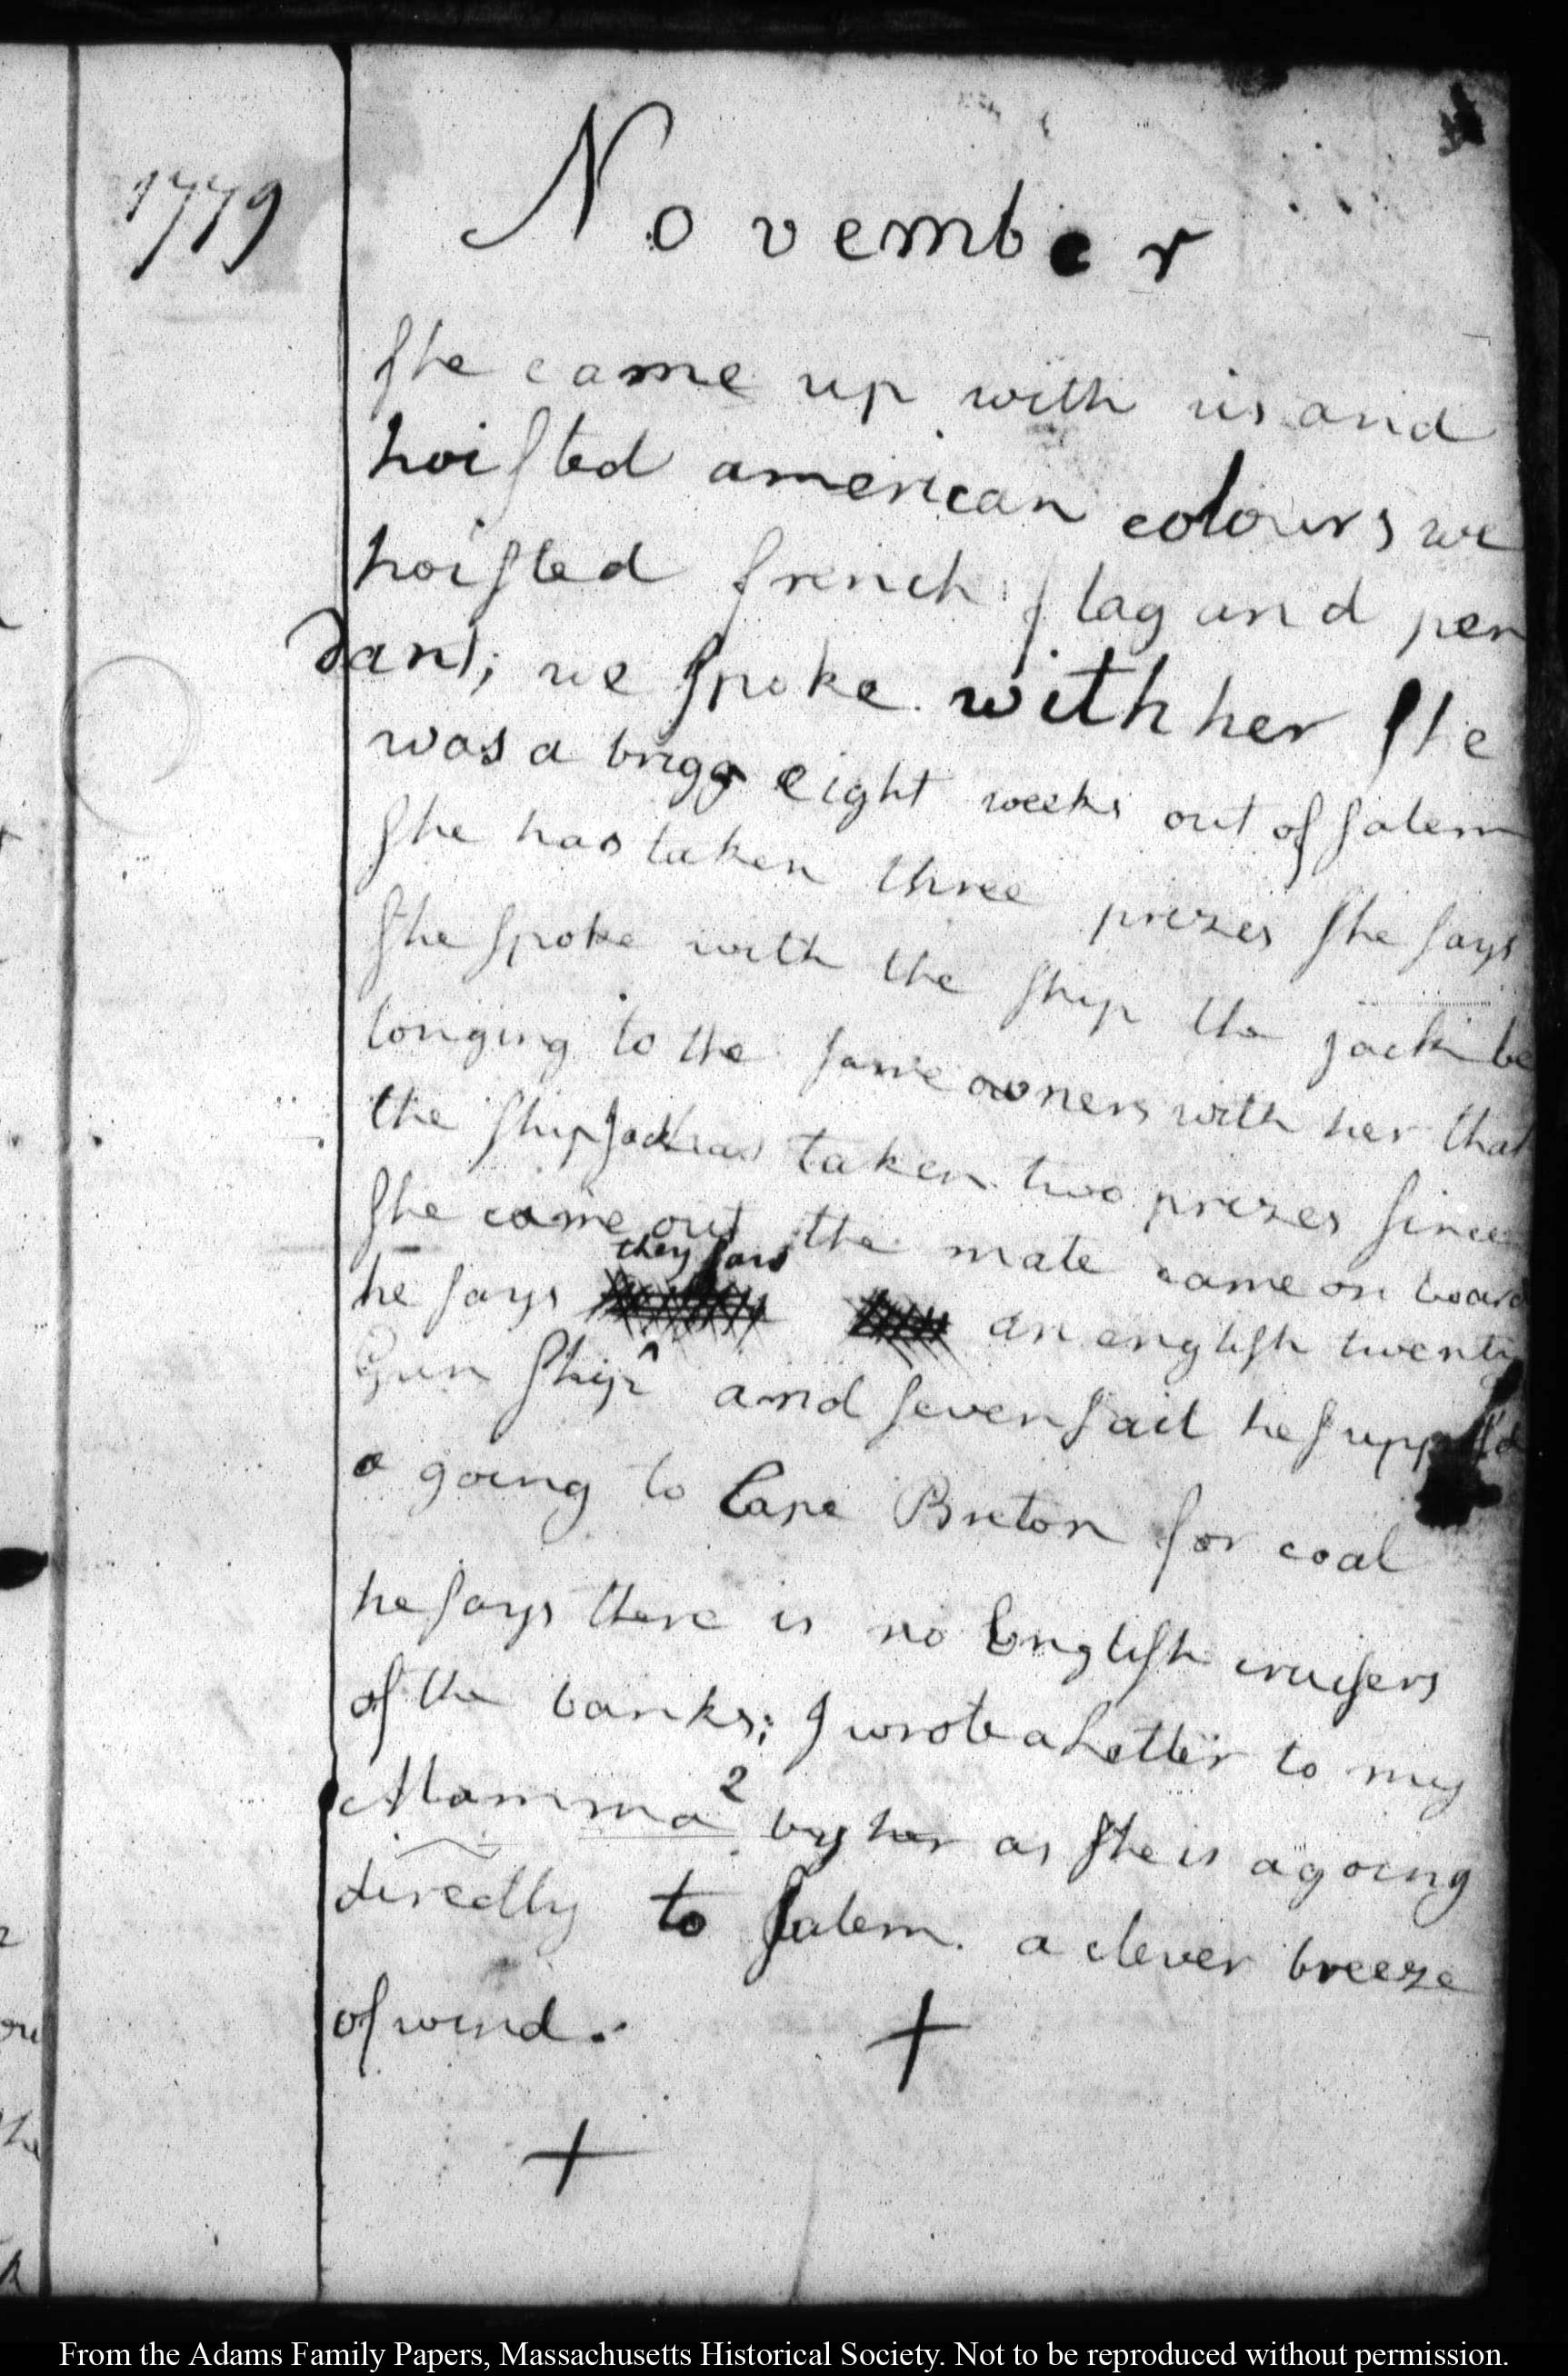 1779
November
She came up with us and
hoisted american colours we
hoisted french flag and pen
dant; we spoke with her she
was a brigg eight weeks out of salem
she has taken three prizes she says
she spoke with the ship the jack be
longing to the same owners with her that
the ship Jack has taken two prizes since
she came out the mate came on board
they saw
he says an english twenty
Gun ship ^ and seven sail he suppos'd
a going to Cape Breton for coal
he says there is no English cruisers
of the banks; I wrote a Letter to my
Mamma 2 by her as she is a going
directly to salem. a clever breeze
of wind.
From the Adams Family Papers, Massachusetts Historical Society. Not to be reproduced without permission.